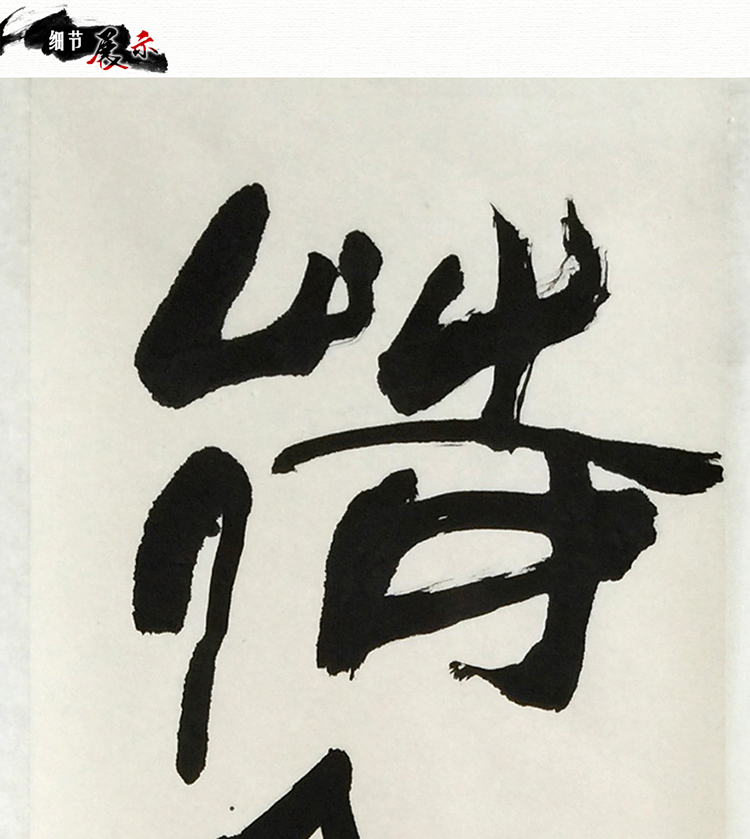 细节展示
荷